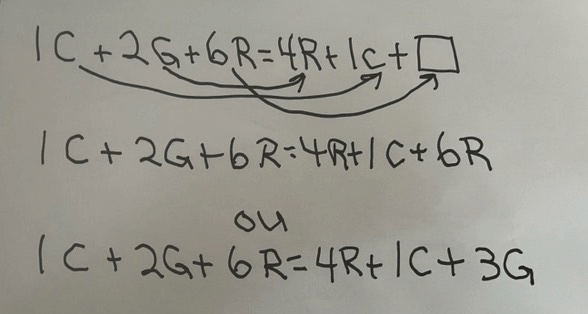 1C+2G+6R=4R+1C+□
1C+2G+6R=4R+1C+6R
ou
1C+2G+6R=4R+1C+3G